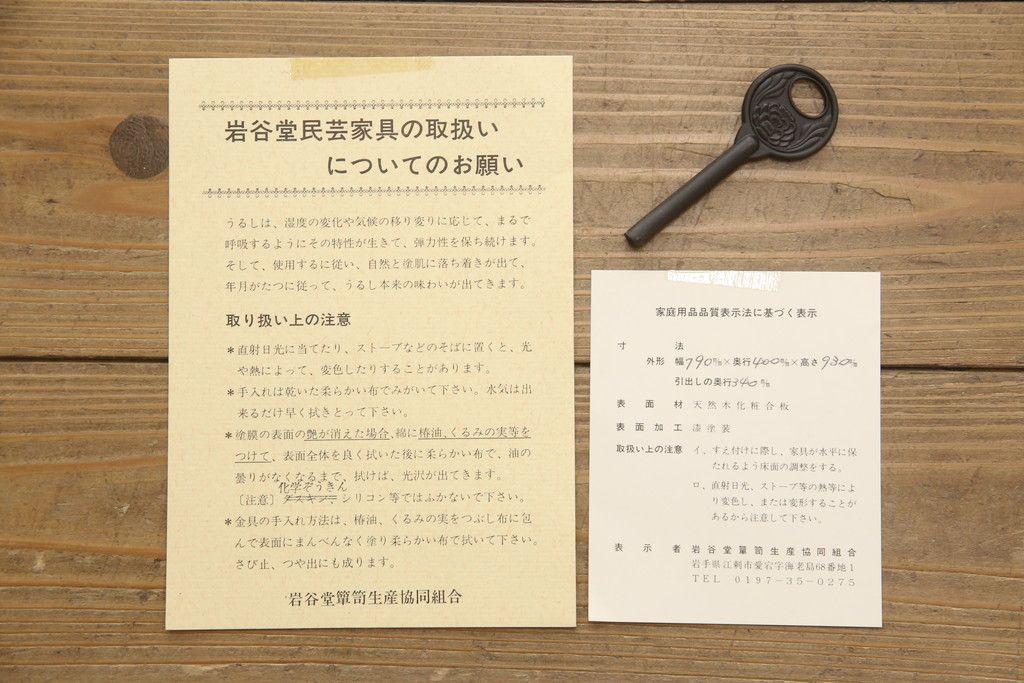 岩谷堂民芸家具の取扱い
についてのお願い
うるしは、湿度の変化や気候の移り変りに応じて、まるで
呼吸するようにその特性が生きて、弾力性を保ち続けます。
そして、使用するに従い、自然と塗肌に落ち着きが出て、
年月がたつに従って、うるし本来の味わいが出てきます。
取り扱い上の注意
*直射日光に当てたり、ストーブなどのそばに置くと、光
や熱によって、変色したりすることがあります。
*手入れは乾いた柔らかい布でみがいて下さい。水気は出
来るだけ早く拭きとって下さい。
*塗膜の表面の艶が消えた場合、綿に椿油、くるみの実等を
つけて、表面全体を良く拭いた後に柔らかい布で、油の
曇りがなくなるまで、拭けば、光沢が出てきます。
化学ぞうきん
〔注意〕ダスキン、シリコン等ではふかないで下さい。
*金具の手入れ方法は、椿油、くるみの実をつぶし布に包
んで表面にまんべんなく塗り柔らかい布で拭いて下さい。
さび止、つや出にも成ります。
岩谷堂簞笥生産協同組合
家庭用品品質表示法に基づく表示
寸法
外形 幅790㎜×奥行400㎜×高さ930㎜
引出しの奥行340㎜
表面材 天然木化粧合板
表面加工 漆塗装
取扱い上の注意 イ、すえ付けに際し、家具が水平に保
たれるよう床面の調整をする。
ロ、直射日光、ストーブ等の熱等によ
り変色し、または変形することが
あるから注意して下さい。
表示者 岩谷堂簞笥生産協同組合
岩手県江刺市愛宕字海老島68番地1
TEL 0197-35-0275